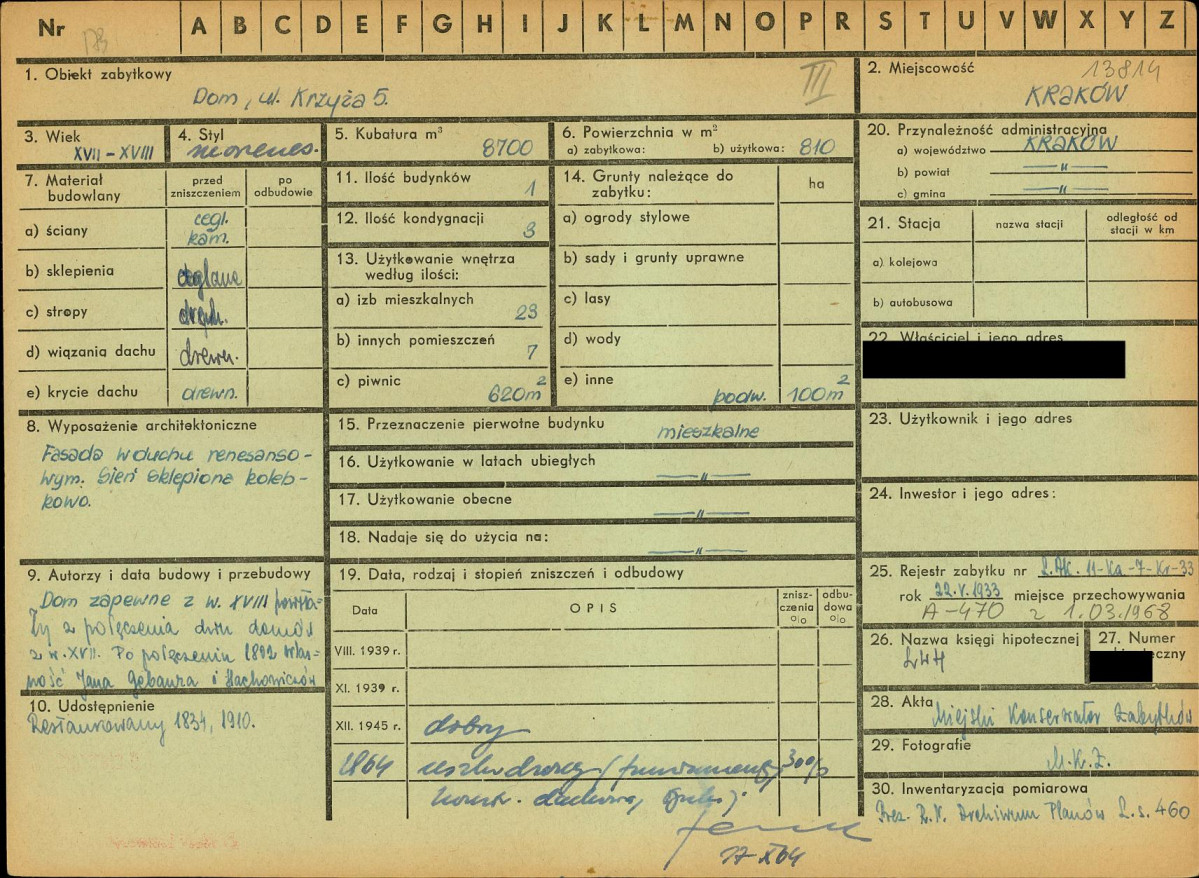 Nr A B C D E F G H I J K L M N O P R S T U V W X Y Z
1. Obiekt zabytkowy
Dom, ul. Krzyża 5.
III
2. Miejscowość
13814
KRAKÓW
3. Wiek
XVII – XVIII
4. Styl
neorenes.
5. Kubatura m³
8700
6. Powierzchnia w m²
a) zabytkowa: b) użytkowa: 810
20. Przynależność administracyjna
a) województwo KRAKÓW
b) powiat —"—
c) gmina —"—
7. Materiał budowlany
przed zniszczeniem
po odbudowie
a) ściany cegl. kam.
b) sklepienia ceglane
c) stropy drewn.
d) wiązania dachu drewn.
e) krycie dachu drewn.
11. Ilość budynków 1
12. Ilość kondygnacji 3
13. Użytkowanie wnętrza
według ilości:
a) izb mieszkalnych 23
b) innych pomieszczeń 7
c) piwnic 620m²
14. Grunty należące do
zabytku: ha
a) ogrody stylowe
b) sady i grunty uprawne
c) lasy
d) wody
e) inne podw. 100m²
21. Stacja nazwa stacji odległość od
stacji w km
a) kolejowa
b) autobusowa
22. Właściciel i jego adres
8. Wyposażenie architektoniczne
Fasada w duchu renesanso-
wym. Sień sklepiona koleb-
kowo.
15. Przeznaczenie pierwotne budynku mieszkalne
16. Użytkowanie w latach ubiegłych —"—
17. Użytkowanie obecne —"—
18. Nadaje się do użycia na: —"—
23. Użytkownik i jego adres
24. Inwestor i jego adres:
9. Autorzy i data budowy i przebudowy
Dom zapewne z w. XVIII powsta-
ły z połączenia dwu domów
z w. XVII. Po połączeniu 1802 włas-
ność Jana Gebaura i
10. Udostępnienie
Restaurowany 1834, 1910.
19. Data, rodzaj i stopień zniszczeń i odbudowy
Data OPIS znisz-
czenia
%
odbu-
dowa
%
VIII. 1939 r.
XI. 1939 r.
XII. 1945 r. dobry
1964 30%
konstr. dachowa,
17 X 64
25. Rejestr zabytku nr L.AK. 11-Ka-7-Kr-33
rok 22.V.1933 miejsce przechowywania
A-470 z 1.03.1968
26. Nazwa księgi hipotecznej
LWH
27. Numer
28. Akta Miejski Konserwator Zabytków
29. Fotografie M.K.Z.
30. Inwentaryzacja pomiarowa
Prez. R.N. Archiwum Planów L.s. 460